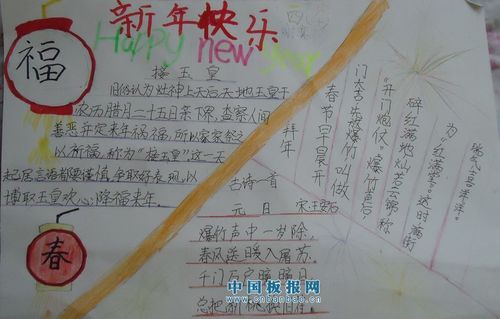 新年快乐
Happy new year
福
接玉皇
旧俗认为灶神上天后天地玉皇于
农历腊月二十五日亲下界,查察人间
善恶并定来年祸福,所以家家祭之
以祈福,称为"接玉皇"这一天
起居言语都要谨慎,争取好表现,以
博取玉皇欢心,降福来年。
春
拜年
春节早晨开
门大吉先放爆竹叫做
"开门炮仗"爆竹声后
碎红满地灿若云锦称
为"红满堂"。这时满街
瑞气喜洋洋。
古诗一首
元日 宋:王安石
爆竹声中一岁除,
春风送暖入屠苏。
千门万户曈曈日,
总把新桃换旧符。
中国板报网
www.cnbanbao.cn